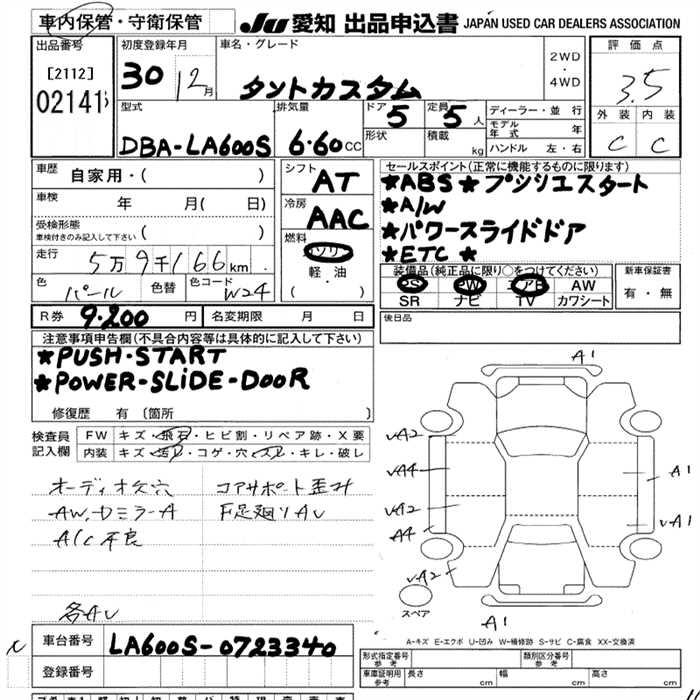 車内保管・守衛保管 JU 愛知 出品申込書 JAPAN USED CAR DEALERS ASSOCIATION
出品番号 初度登録年月 車名・グレード 2WD・4WD 評価点
[2112] 02141 30 12月 タントカスタム 3.5
型式 排気量 ドア 5 定員 5人 ディーラー・並行 外装 内装
DBA-LA600S 6.60cc 形状 積載 kg モデル年式 年 C C
ハンドル 左・右
車歴 自家用・( ) シフト AT セールスポイント(正常に機能するものに限ります)
車検 年 月( 日) 冷房 AAC ★ABS★プシリエスタート
受検形態 ( ) ★A/W
車検付きのみ記入して下さい 燃料 ★パワースライドドア
走行 5万9千166km ガソリン ★ETC★
色 パール 色替 色コード W24 軽油 ・( )
装備品(純正品に限り○をつけてください) 新車保証書
PS PW エアB AW 有・無
SR ナビ TV カワシート
R券 9.200円 名変期限 月 日 後日品
注意事項申告欄(不具合内容等は具体的に記入して下さい)
★PUSH・START
★POWER-SLiDE-DOOR
修復歴 有〔箇所 〕
検査員記入欄 FW キズ・飛石・ヒビ割・リペア跡・X要
内装 キズ・汚れ・コゲ・穴・スレ・キレ・破レ
オーディオ欠穴 コアサポート歪み
AW、DミラーA 下足廻りAU
A/C不良
各AU
A1
UA2
UA4 A1
UA2 UA1
A4
UA2
スペア
A1
A-キズ E-エクボ U-凹み W-補修跡 S-サビ C-腐食 XX-交換済
車台番号 LA600S-0723340
登録番号
形式指定番号 参考 類別区分番号 参考
車庫証明用 参考 長さ cm 幅 cm 高さ cm